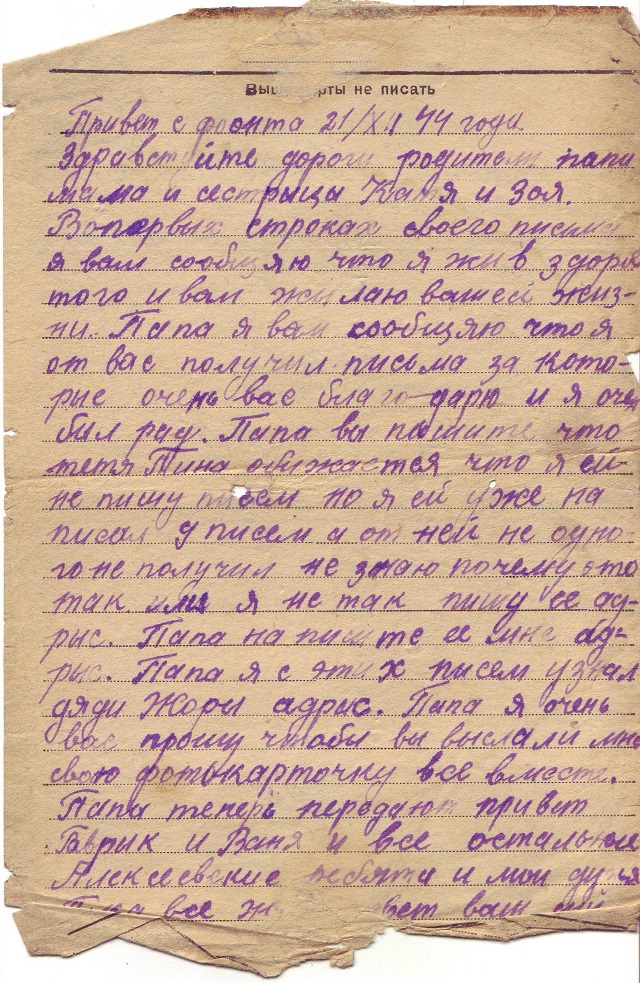 Выше черты не писать
Привет с фронта 21/XII 44 годи.
Здравствуйте дороги родители папа
мама и сестрыцы Катя и Зоя.
Вопервых строках своего письма
я вам сообщяю что я жив здоров
того и вам жилаю вашей жиз-
ни. Папа я вам сообщяю что я
от вас получил письма за кото-
рые очень вас благо-дарю и я очен
бил рад. Папа вы пишите что
тетя Тина обижается что я ей
не пишу писем но я ей уже на
писал 9 писем а от ней не одно-
го не получил не знаю почему это
так или я не так пишу ее ад-
рыс. Папа на пишите ее мне ад-
рыс. Папа я с этих писем узнал
дяди Жоры адрыс. Папа я очень
вас прошу чтоби вы выслали мне
свою фотокарточку все вместе.
Папа теперь передают привет
Гаврык и Ваня и все остальные
Алексеевские ребята и мои друзя
Папа все вам